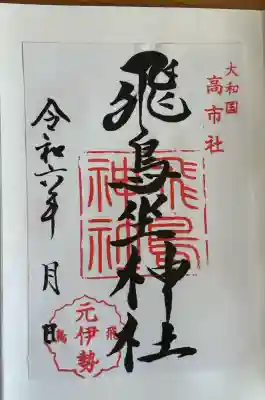 大和国
高市社
飛鳥坐神社
飛鳥
令和六年 月 日
元伊勢
飛鳥